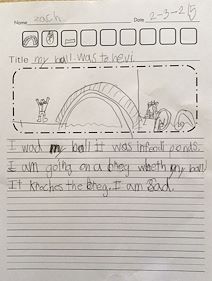 Name zach Date 2-3-25
Title my ball was to hevi
I wad my ball It was infoodi ponds.
I am going on a breg wheth my ball
It kraches the breg. I am Sad.